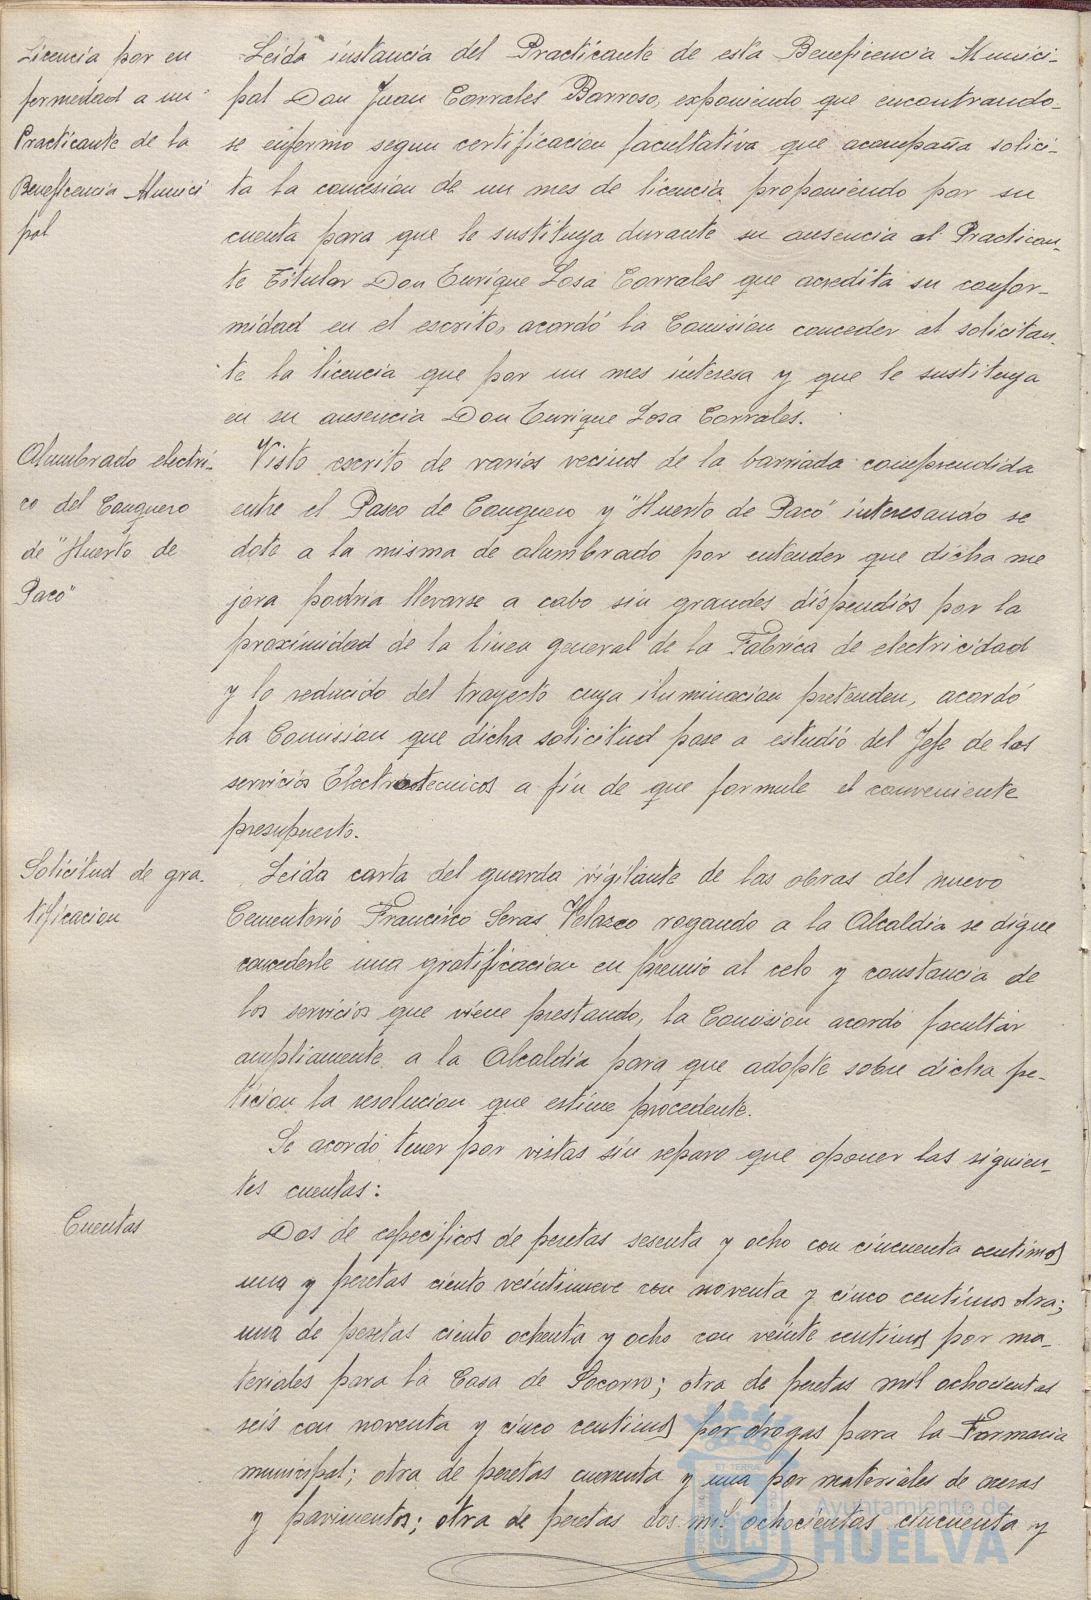 Licencia por en
fermedad a un
Practicante de la
Beneficencia Munici
pal
Leida instancia del Practicante de esta Beneficencia Munici-
pal Don Juan Corrales Barroso, exponiendo que encontrando-
se enfermo segun certificacion facultativa que acompaña solici-
ta la concesion de un mes de licencia proponiendo por su
cuenta para que le sustituya durante su ausencia al Practican-
te Titular Don Enrique Losa Corrales que acredita su confor-
midad en el escrito, acordó la Comision conceder al solicitan-
te la licencia que por un mes interesa y que le sustituya
en su ausencia Don Enrique Losa Corrales.
Alumbrado electri-
co del Conquero
de "Huerto de
Paco"
Visto escrito de varios vecinos de la barriada comprendida
entre el Paseo de Conquero y "Huerto de Paco" interesando se
dote a la misma de alumbrado por entender que dicha me
jora podria llevarse a cabo sin grandes dispendios por la
proximidad de la linea general de la Fabrica de electricidad
y lo reducido del trayecto cuya iluminacion pretenden, acordó
la Comision que dicha solicitud pase a estudio del Jefe de los
servicios Electrotecnicos a fin de que formule el conveniente
presupuesto.
Solicitud de gra-
tificacion
Leida carta del guarda vigilante de las obras del nuevo
Cementerio Francisco Seras Velazco rogando a la Alcaldia se digne
concederle una gratificacion en premio al celo y constancia de
los servicios que viene prestando, la Comision acordó facultar
ampliamente a la Alcaldia para que adopte sobre dicha pe-
ticion la resolucion que estime procedente.
Se acordó tener por vistas sin reparo que oponer las siguien-
tes cuentas:
Cuentas
Dos de especificos de pesetas sesenta y ocho con cincuenta centimos
una y pesetas ciento veintinueve con noventa y cinco centimos otra;
una de pesetas ciento ochenta y ocho con veinte centimos por ma-
teriales para la Casa de Socorro; otra de pesetas mil ochocientas
seis con noventa y cinco centimos por drogas para la Farmacia
municipal; otra de pesetas cuarenta y una por materiales de aceras
y pavimentos; otra de pesetas dos mil ochocientas cincuenta y
Ayuntamiento de
HUELVA